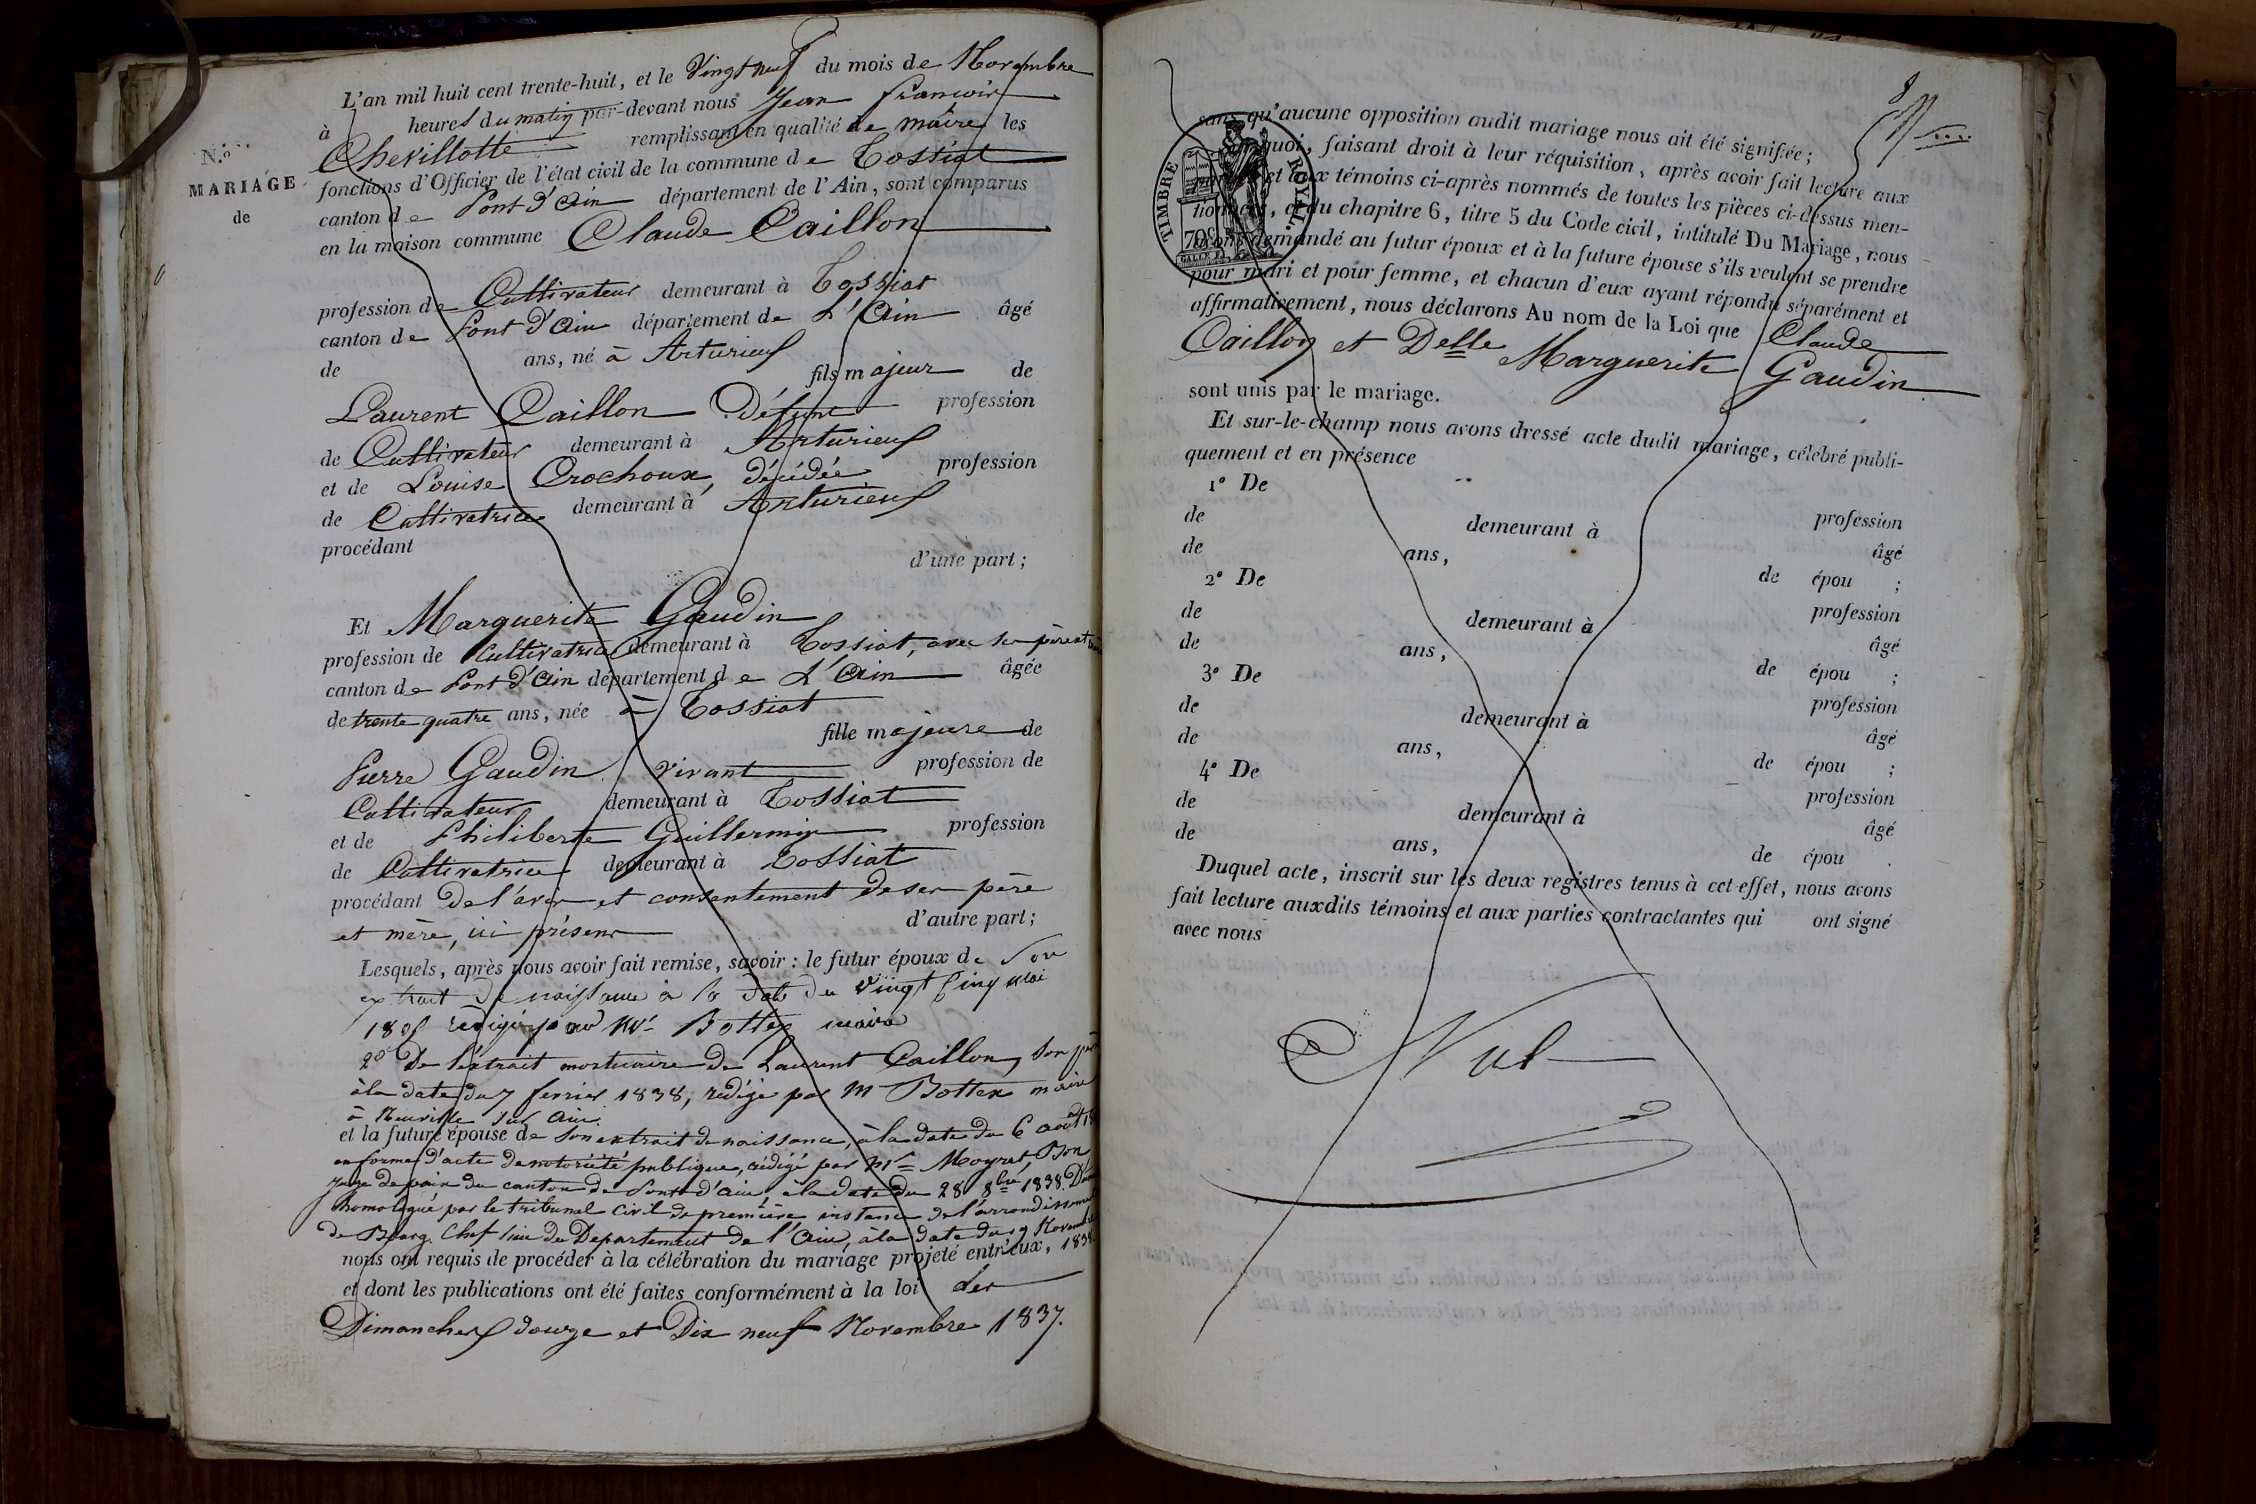 L'an mil huit cent trente-huit, et le Vingt neuf du mois de Novembre
à heures du matin par-devant nous Jean francois
Chevillotte remplissant en qualité de maire les
N.º
MARIAGE
de
fonctions d'Officier de l'état civil de la commune de Tossiat
canton de Pont d'Ain département de l'Ain, sont comparus
en la maison commune Claude Caillon
profession de Cultivateur demeurant à Tossiat
canton de Pont d'Ain département de L'Ain âgé
de ans, né à Arturieux
fils majeur de
Laurent Caillon Défunt profession
de Cultivateur demeurant à Arturieux
et de Louise Crochoux, décédée profession
de Cultivatrice demeurant à Arturieux
procédant
d'une part;
Et Marguerite Gaudin
profession de Cultivatrice demeurant à Tossiat, avec ses père et
canton de Pont d'Ain département de L'Ain âgée
de trente quatre ans, née à Tossiat
fille majeure de
Pierre Gaudin vivant profession de
Cultivateur demeurant à Tossiat
et de Philiberte Guillermin profession
de Cultivatrice demeurant à Tossiat
procédant de l'avis et consentement de ses père
et mère, ici présens d'autre part;
Lesquels, après nous avoir fait remise, savoir: le futur époux de Son
extrait de naissance à la date du vingt Cinq mai
rédigé par Mr Bottex maire
2º De l'extrait mortuaire de Laurent Caillon, son père
à la date du 7 fevrier 1838, rédigé par M Bottex maire
à Neuville sur Ain.
et la future épouse de son extrait de naissance, à la date du 6 août
en forme d'acte de notoriété publique, rédigé par Mr Moyret, Bon
juge de paix du canton de Pont d'Ain, à la date du 28 8bre 1838.
homologué par le tribunal Civil de première instance de l'arrondissement
de Bourg, Chef lieu du Département de l'Ain, à la date du 19 Novembre
nous ont requis de procéder à la célébration du mariage projeté entr'eux, 1838.
et dont les publications ont été faites conformément à la loi les
Dimanches douze et Dix neuf Novembre 1837.
8
TIMBRE ROYAL.
70c
sans qu'aucune opposition audit mariage nous ait été signifiée;
quoi, faisant droit à leur réquisition, après avoir fait lecture aux
et aux témoins ci-après nommés de toutes les pièces ci-dessus men-
tionnées, et du chapitre 6, titre 5 du Code civil, intitulé Du Mariage, nous
avons demandé au futur époux et à la future épouse s'ils veulent se prendre
pour mari et pour femme, et chacun d'eux ayant répondu séparément et
affirmativement, nous déclarons Au nom de la Loi que Claude
Caillon et Delle Marguerite Gaudin
sont unis par le mariage.
Et sur-le-champ nous avons dressé acte dudit mariage, célébré publi-
quement et en présence
1º De
de demeurant à profession
de ans, âgé
2º De de épou ;
de demeurant à profession
de ans, âgé
3º De de épou ;
de demeurant à profession
de ans, âgé
4º De de épou ;
de demeurant à profession
de ans, âgé
de épou .
Duquel acte, inscrit sur les deux registres tenus à cet effet, nous avons
fait lecture auxdits témoins et aux parties contractantes qui ont signé
avec nous
Nul